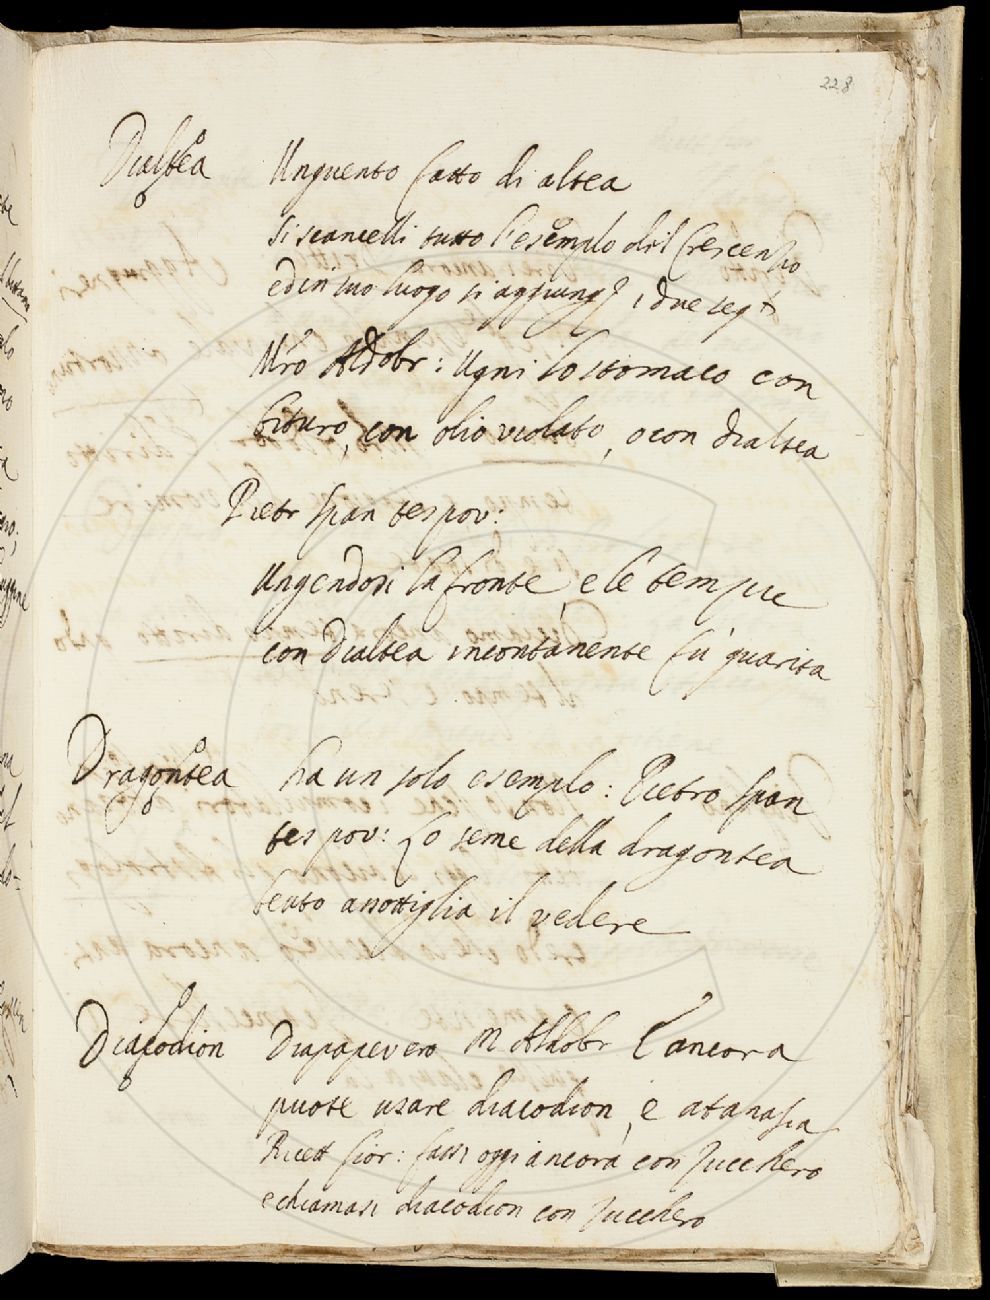 228
Dialtea Unguento fatto di altea
Si scancelli tutto l'esemplo del Crescenzio
ed in suo luogo si aggiung i due seg.ti
M.ro Aldobr: Ugni lo stomaco con
bituro, con olio violato, o con dialtea
Pietr span tes pov:
Ungendosi la fronte, e le tempie
con dialtea incontanente fu guarita
Dragontea ha un solo esemplo: Pietro span
tes pov: Lo seme della dragontea
beuto assottiglia il vedere
Diacodion Diapapevero M Aldobr E ancora
puote usare diacodion, e atanasia
Ricett fior: fassi oggi ancora con zucchero
e chiamasi diacodion con zucchero